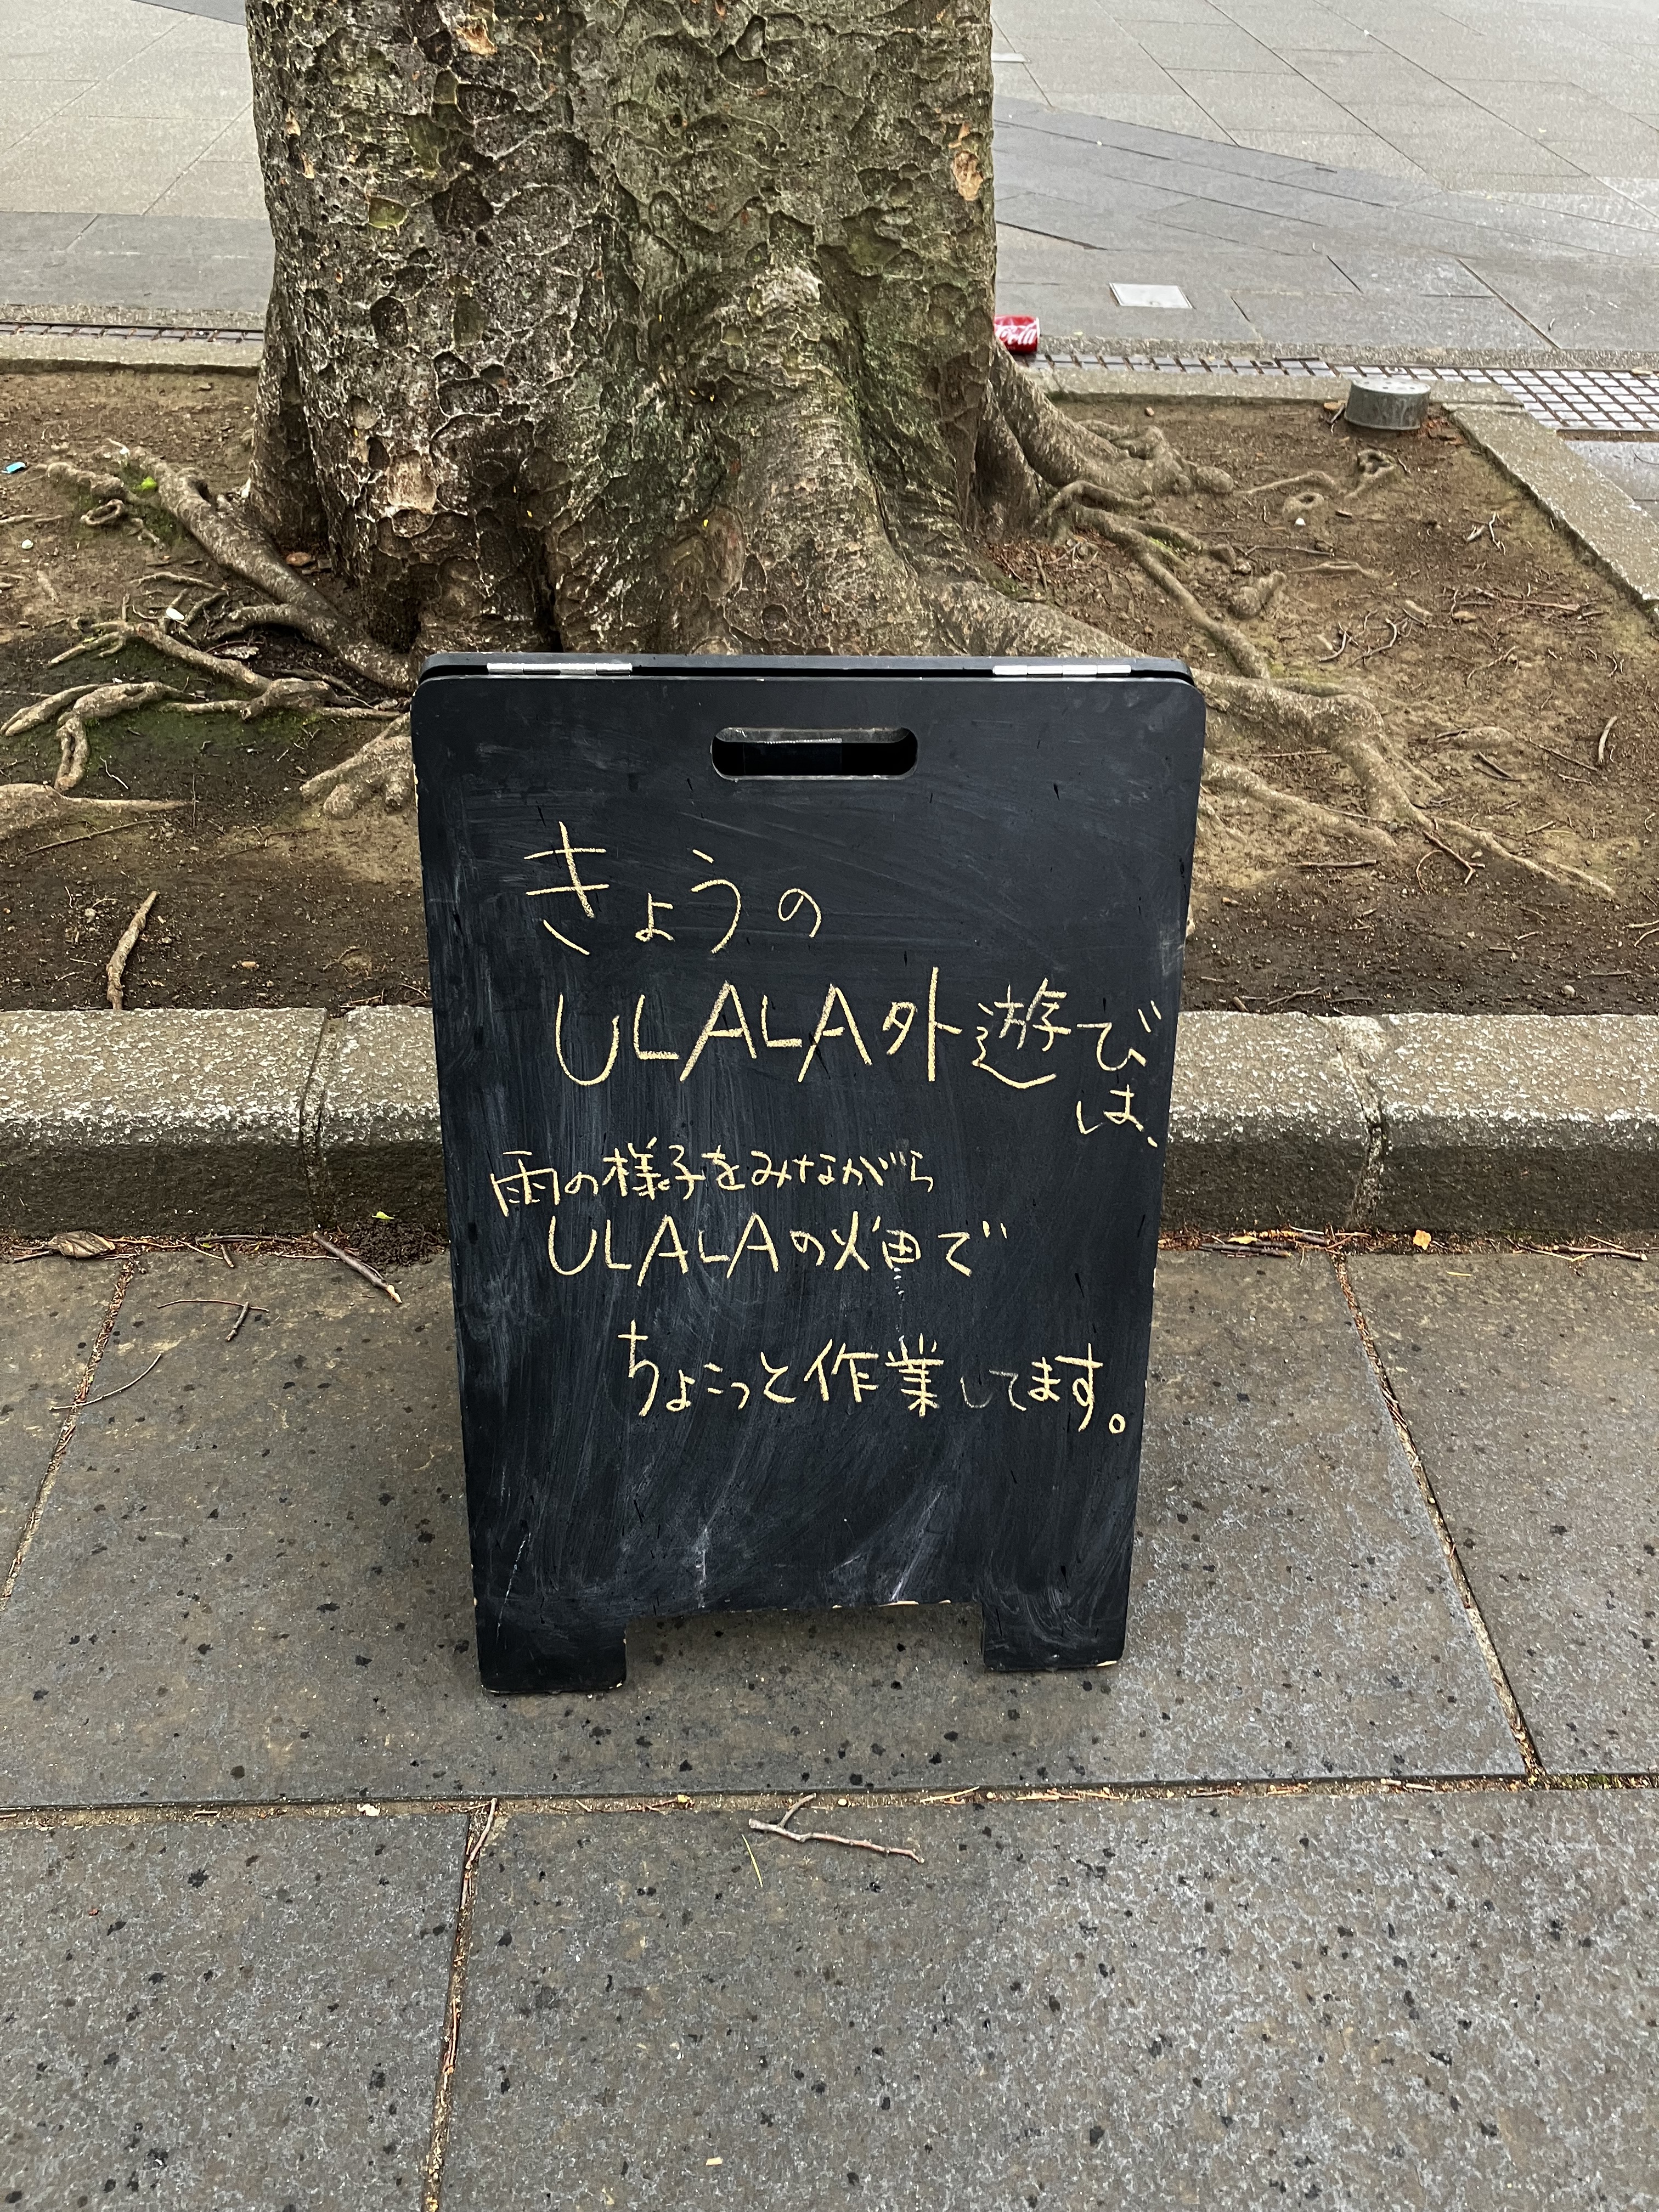 きょうの
ULALA外遊び
は、
雨の様子をみながら
ULALAの畑で
ちょこっと作業してます。